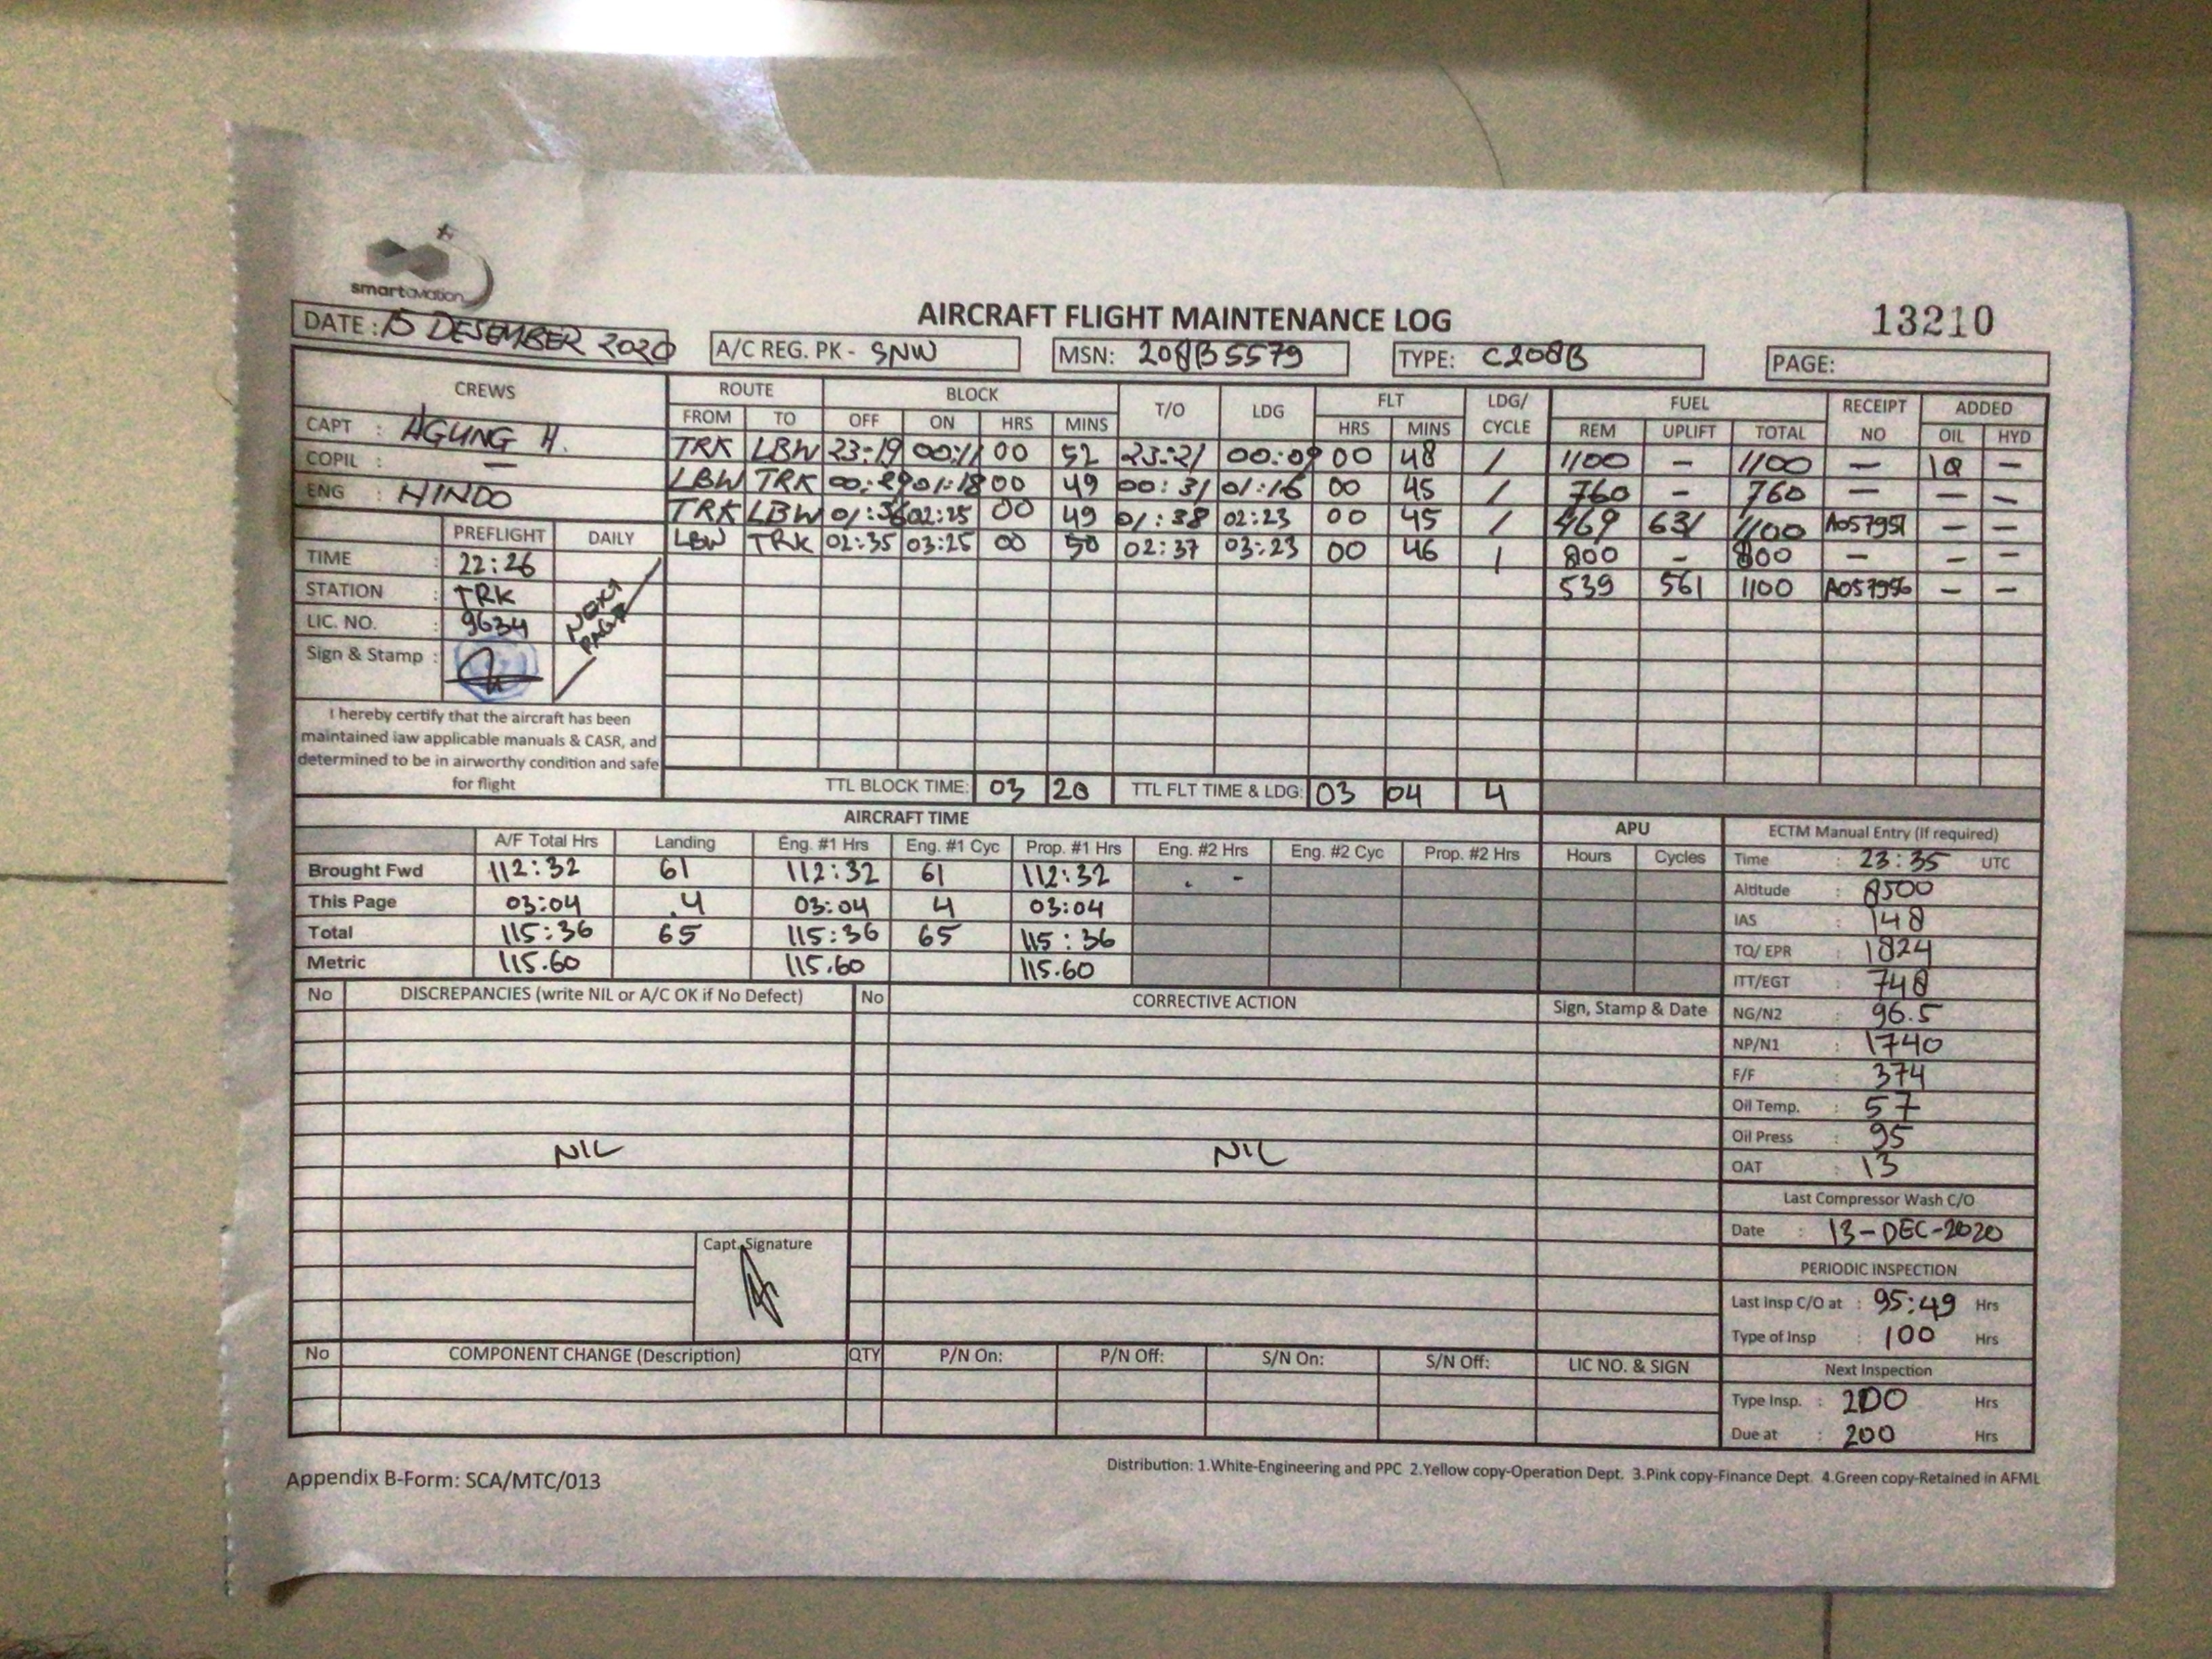 smartaviation
DATE : 15 DESEMBER 2020
A/C REG. PK - SNW
AIRCRAFT FLIGHT MAINTENANCE LOG
MSN: 208B5579
TYPE: C208B
13210
PAGE:
CREWS
CAPT : AGUNG H.
COPIL : —
ENG : HINDO
PREFLIGHT DAILY
TIME : 22:26
STATION : TRK
LIC. NO. : 9634
Sign & Stamp :
NEXT PAGE
I hereby certify that the aircraft has been
maintained iaw applicable manuals & CASR, and
determined to be in airworthy condition and safe
for flight
ROUTE BLOCK T/O LDG FLT LDG/ CYCLE FUEL RECEIPT NO ADDED
FROM TO OFF ON HRS MINS HRS MINS REM UPLIFT TOTAL OIL HYD
TRK LBW 23:19 00:11 00 52 23:21 00:09 00 48 1 1100 – 1100 — 1Q —
LBW TRK 00:29 01:18 00 49 00:31 01:16 00 45 1 760 – 760 — — —
TRK LBW 01:36 02:25 00 49 01:38 02:23 00 45 1 469 631 1100 A057951 — —
LBW TRK 02:35 03:25 00 50 02:37 03:23 00 46 1 800 – 800 – – –
539 561 1100 A057956 — —
TTL BLOCK TIME: 03 20 TTL FLT TIME & LDG: 03 04 4
AIRCRAFT TIME
A/F Total Hrs Landing Eng. #1 Hrs Eng. #1 Cyc Prop. #1 Hrs Eng. #2 Hrs Eng. #2 Cyc Prop. #2 Hrs
Brought Fwd 112:32 61 112:32 61 112:32 . -
This Page 03:04 .4 03:04 4 03:04
Total 115:36 65 115:36 65 115:36
Metric 115.60 115.60 115.60
APU
Hours Cycles
ECTM Manual Entry (If required)
Time : 23:35 UTC
Altitude : 8500
IAS : 148
TQ/ EPR : 1824
ITT/EGT : 748
NG/N2 : 96.5
NP/N1 : 1740
F/F : 374
Oil Temp. : 57
Oil Press : 95
OAT : 13
Last Compressor Wash C/O
Date : 13-DEC-2020
PERIODIC INSPECTION
Last Insp C/O at : 95:49 Hrs
Type of Insp : 100 Hrs
Next Inspection
Type Insp. : 200 Hrs
Due at : 200 Hrs
No DISCREPANCIES (write NIL or A/C OK if No Defect) No CORRECTIVE ACTION Sign, Stamp & Date
NIL NIL
Capt. Signature
No COMPONENT CHANGE (Description) QTY P/N On: P/N Off: S/N On: S/N Off: LIC NO. & SIGN
Appendix B-Form: SCA/MTC/013
Distribution: 1.White-Engineering and PPC 2.Yellow copy-Operation Dept. 3.Pink copy-Finance Dept. 4.Green copy-Retained in AFML